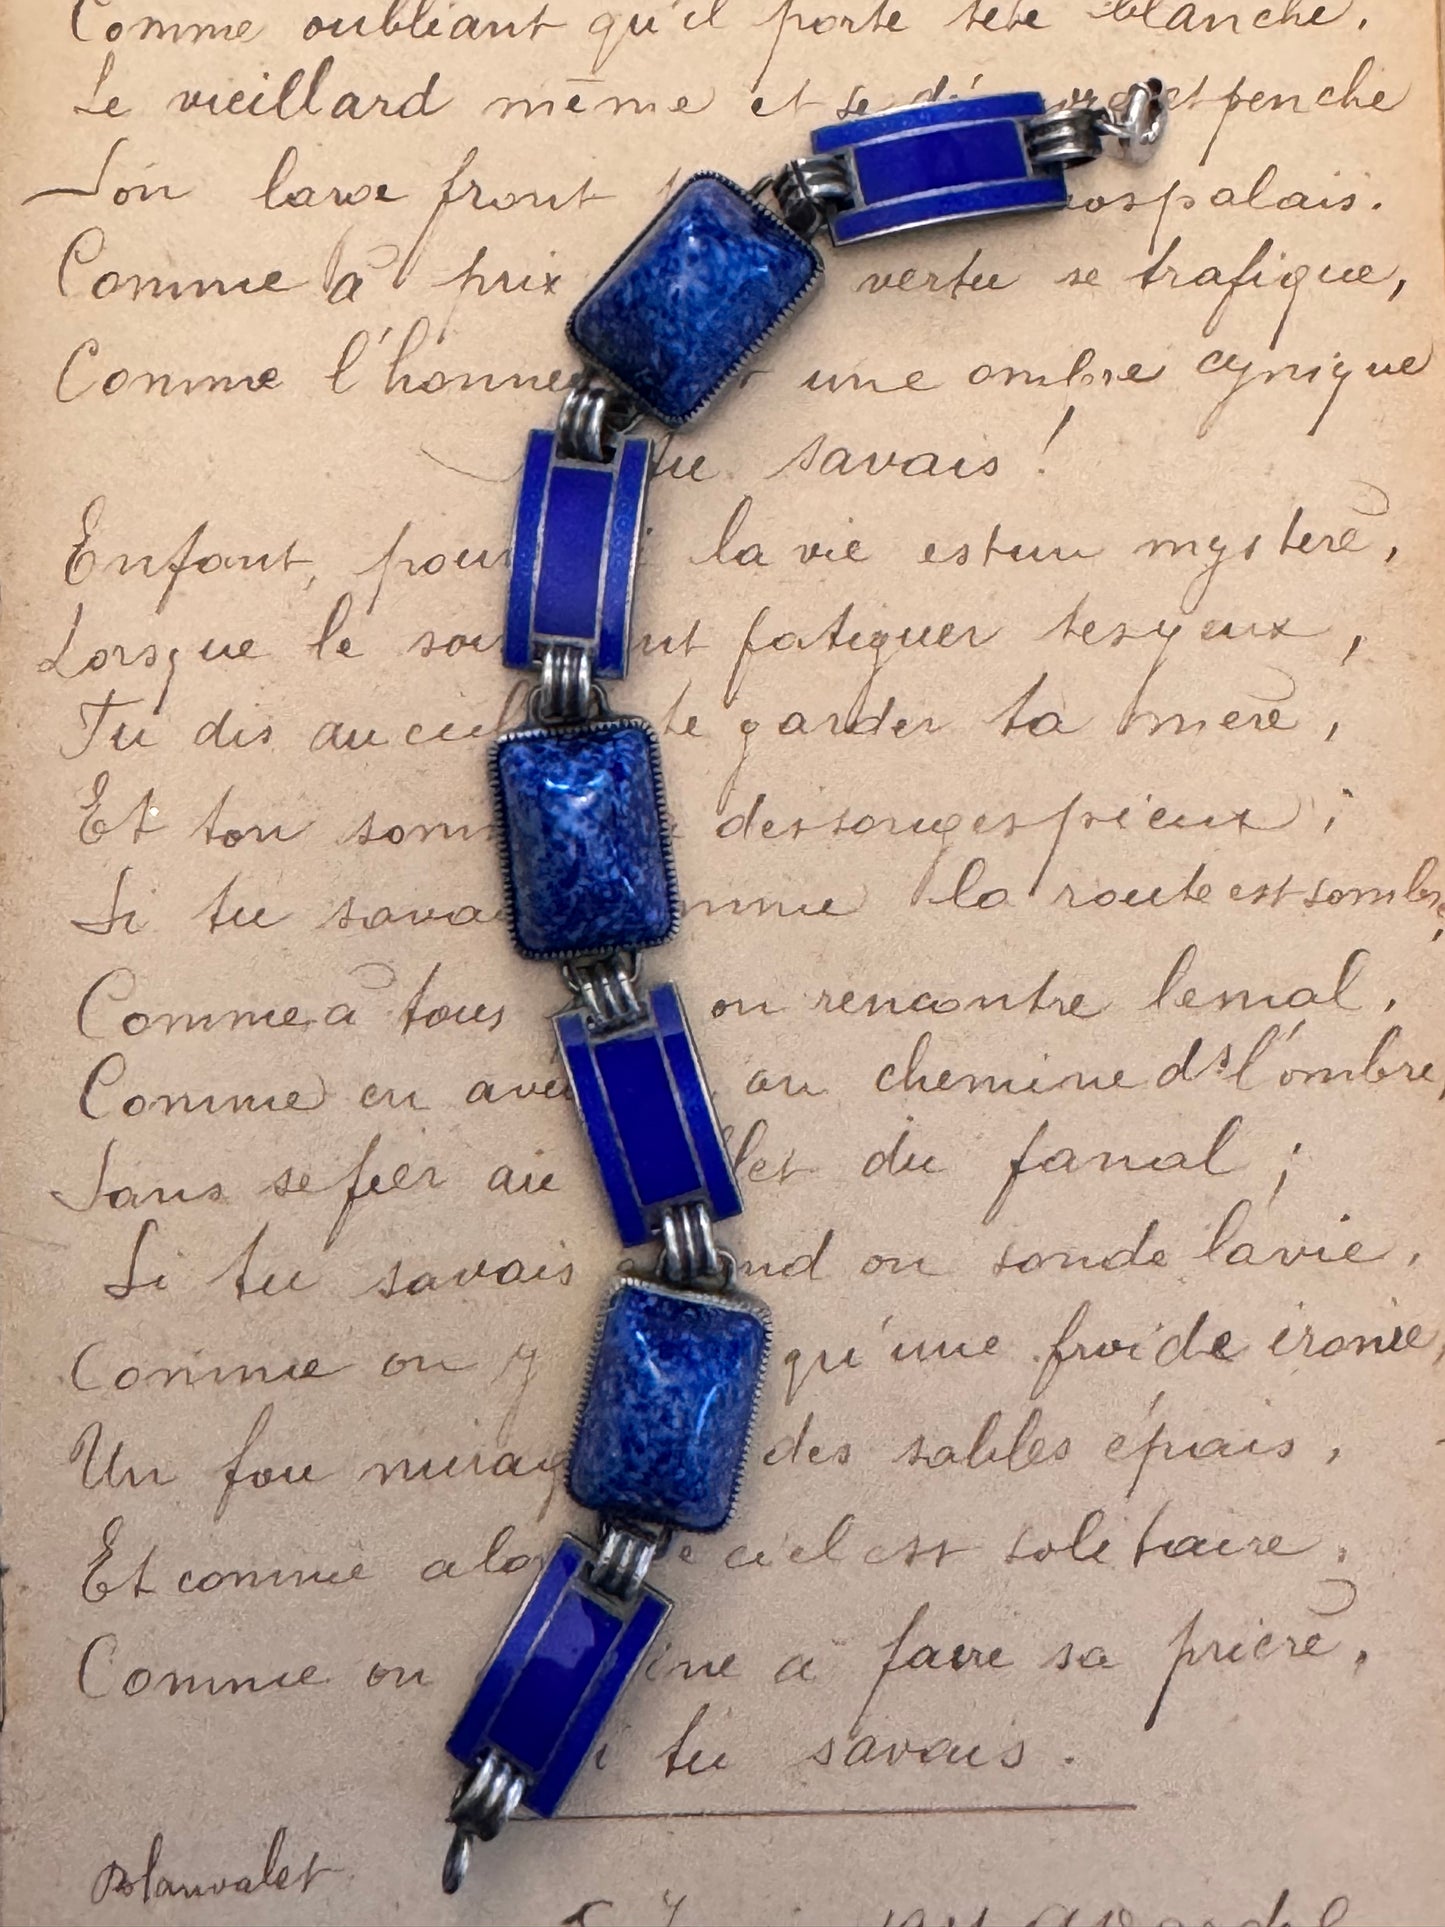 Comme oubliant qu'il porte tête blanche,
Le vieillard même et se et penche
Son large front palais.
Comme à prix vertu se trafique,
Comme l'honneu une ombre cynique
tu savais !
Enfant, pour la vie est un mystère,
Lorsque le soi nt fatiguer tes yeux,
Tu dis au ciel te garder ta mère,
Et ton som des songes pieux ;
Si tu savai mme la route est sombre,
Comme à tous on rencontre le mal,
Comme en ave on chemine ds l'ombre,
Sans se fier au let du fanal ;
Si tu savais and on sonde la vie,
Comme on y qu'une froide ironie,
Un fou mirag des sables épais,
Et comme alo e ciel est solitaire,
Comme on ine à faire sa prière,
i tu savais.
Blanvalet